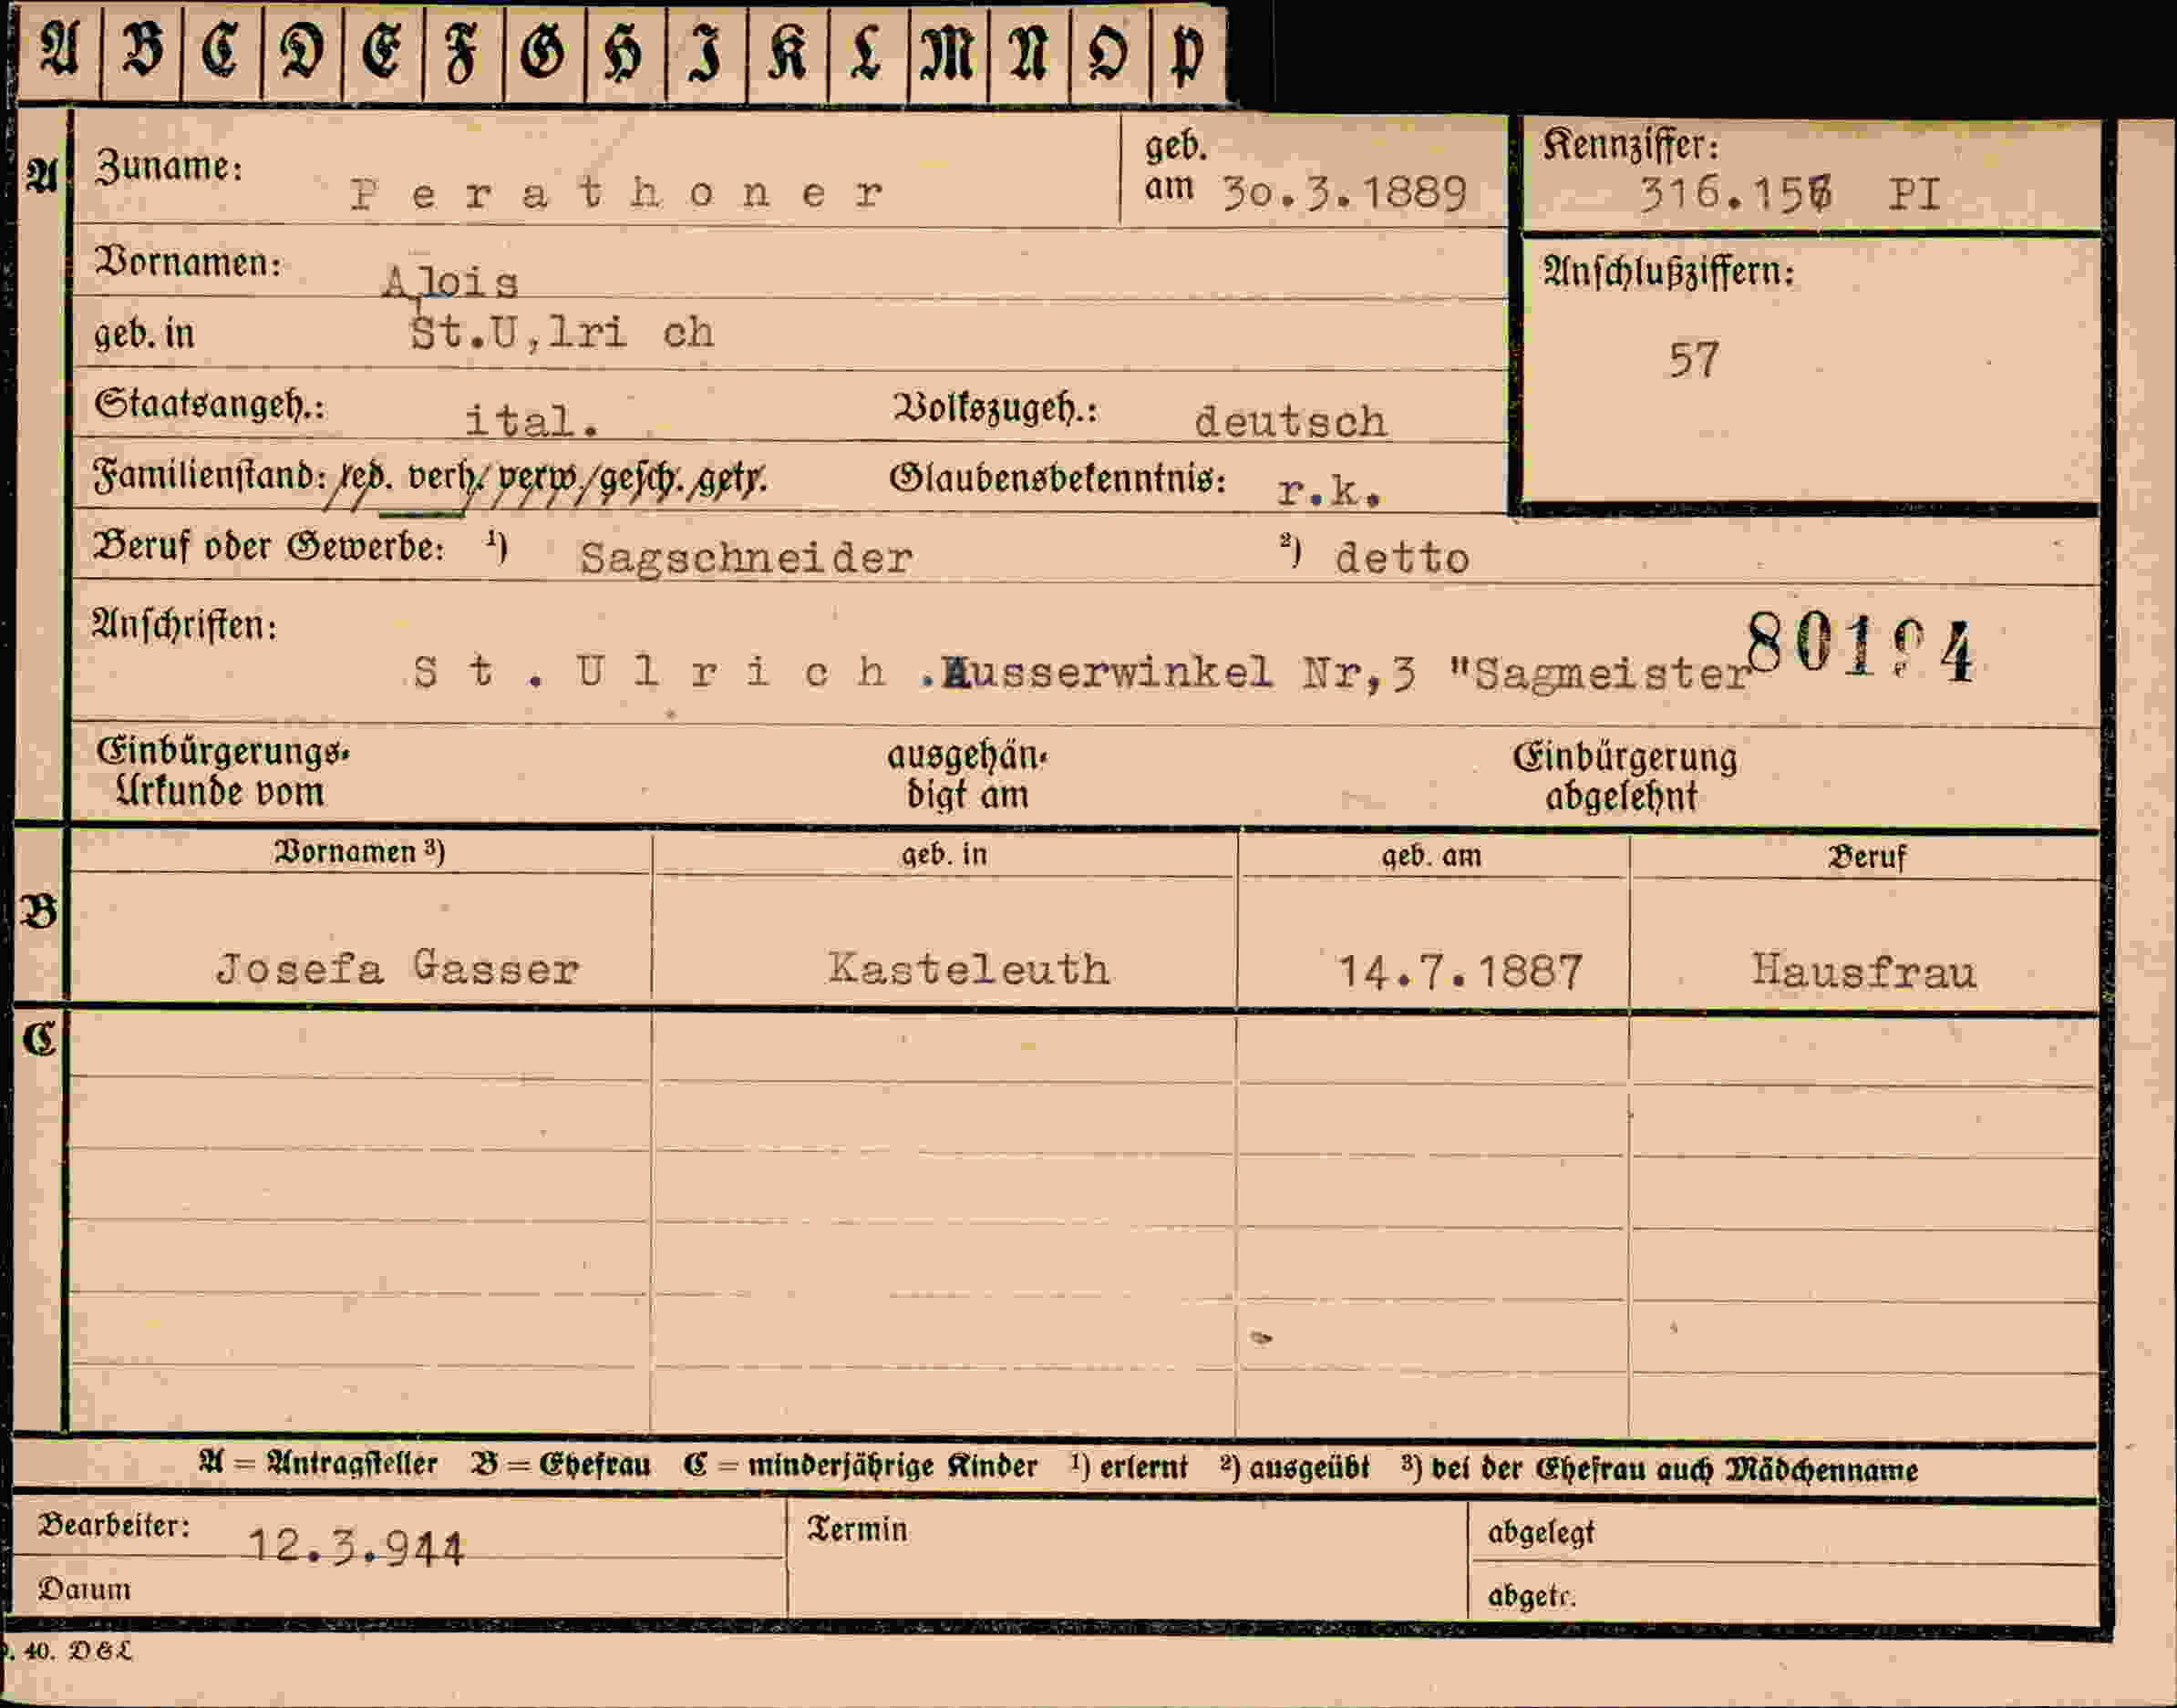 A B C D E F G H I K L M N O P
A
Zuname: Perathoner
geb. am 30.3.1889
Kennziffer: PI
Vornamen: Alois
Anschlußziffern: 57
geb. in St.U,lri ch
Staatsangeh.: ital. Volkszugeh.: deutsch
Familienstand: led. verh. verw./gesch. getr. Glaubensbekenntnis: r.k.
Beruf oder Gewerbe: ¹) Sagschneider ²) detto
Anschriften:
St.Ulrich.Ausserwinkel Nr,3 "Sagmeister
Einbürgerungs-
Urkunde vom
ausgehän-
digt am
Einbürgerung
abgelehnt
B
Vornamen ³) geb. in geb. am Beruf
Josefa Gasser Kasteleuth 14.7.1887 Hausfrau
C
A = Antragsteller B = Ehefrau C = minderjährige Kinder ¹) erlernt ²) ausgeübt ³) bei der Ehefrau auch Mädchenname
Bearbeiter: 12.3.944
Termin
abgelegt
Datum
abgetr.
40. DEL